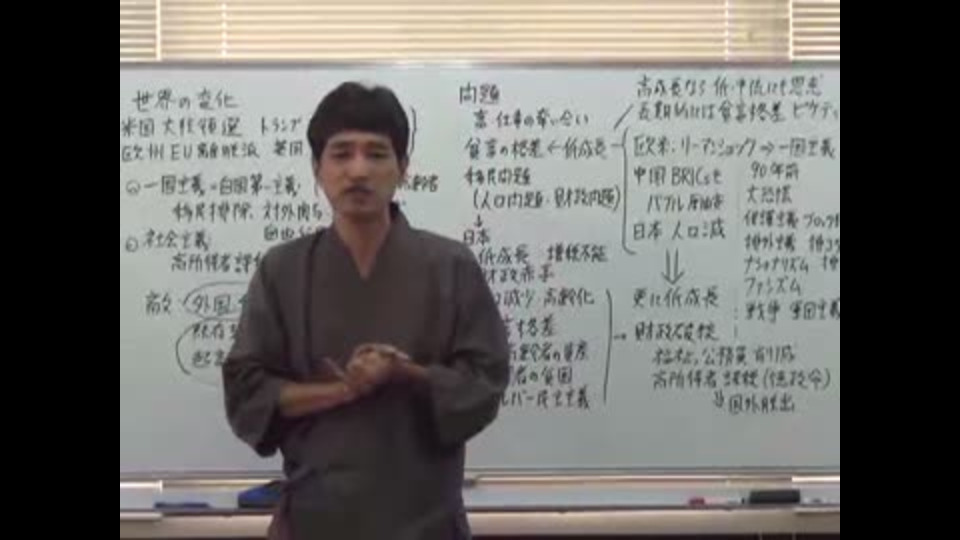 世界の変化
米国大統領選 トランプ
欧州EU離脱派 英国
一国主義=自国第一主義
移民排除 対外
社会主義
高所得者課税
敵 外国
既存
問題
富・仕事の奪い合い
貧富の格差←低成長
移民問題
(人口問題・財政問題)
↓
日本
低成長 増税不能
財政赤字
減少・高齢化
格差
高齢者の資産
者の貧困
ルバー民主主義
高成長なら低・中流にも恩恵
長期的には貧富格差 ピケティ
欧米・リーマンショック⇒一国主義
中国BRICsも
バブル崩壊
日本 人口減
⇓
更に低成長
→財政破綻
福祉,公務員削減
高所得者課税(徳政令)
国外脱出
90年前
大恐慌
保護主義 ブロック
排外主義
ナショナリズム
ファシズム
戦争 軍国主義